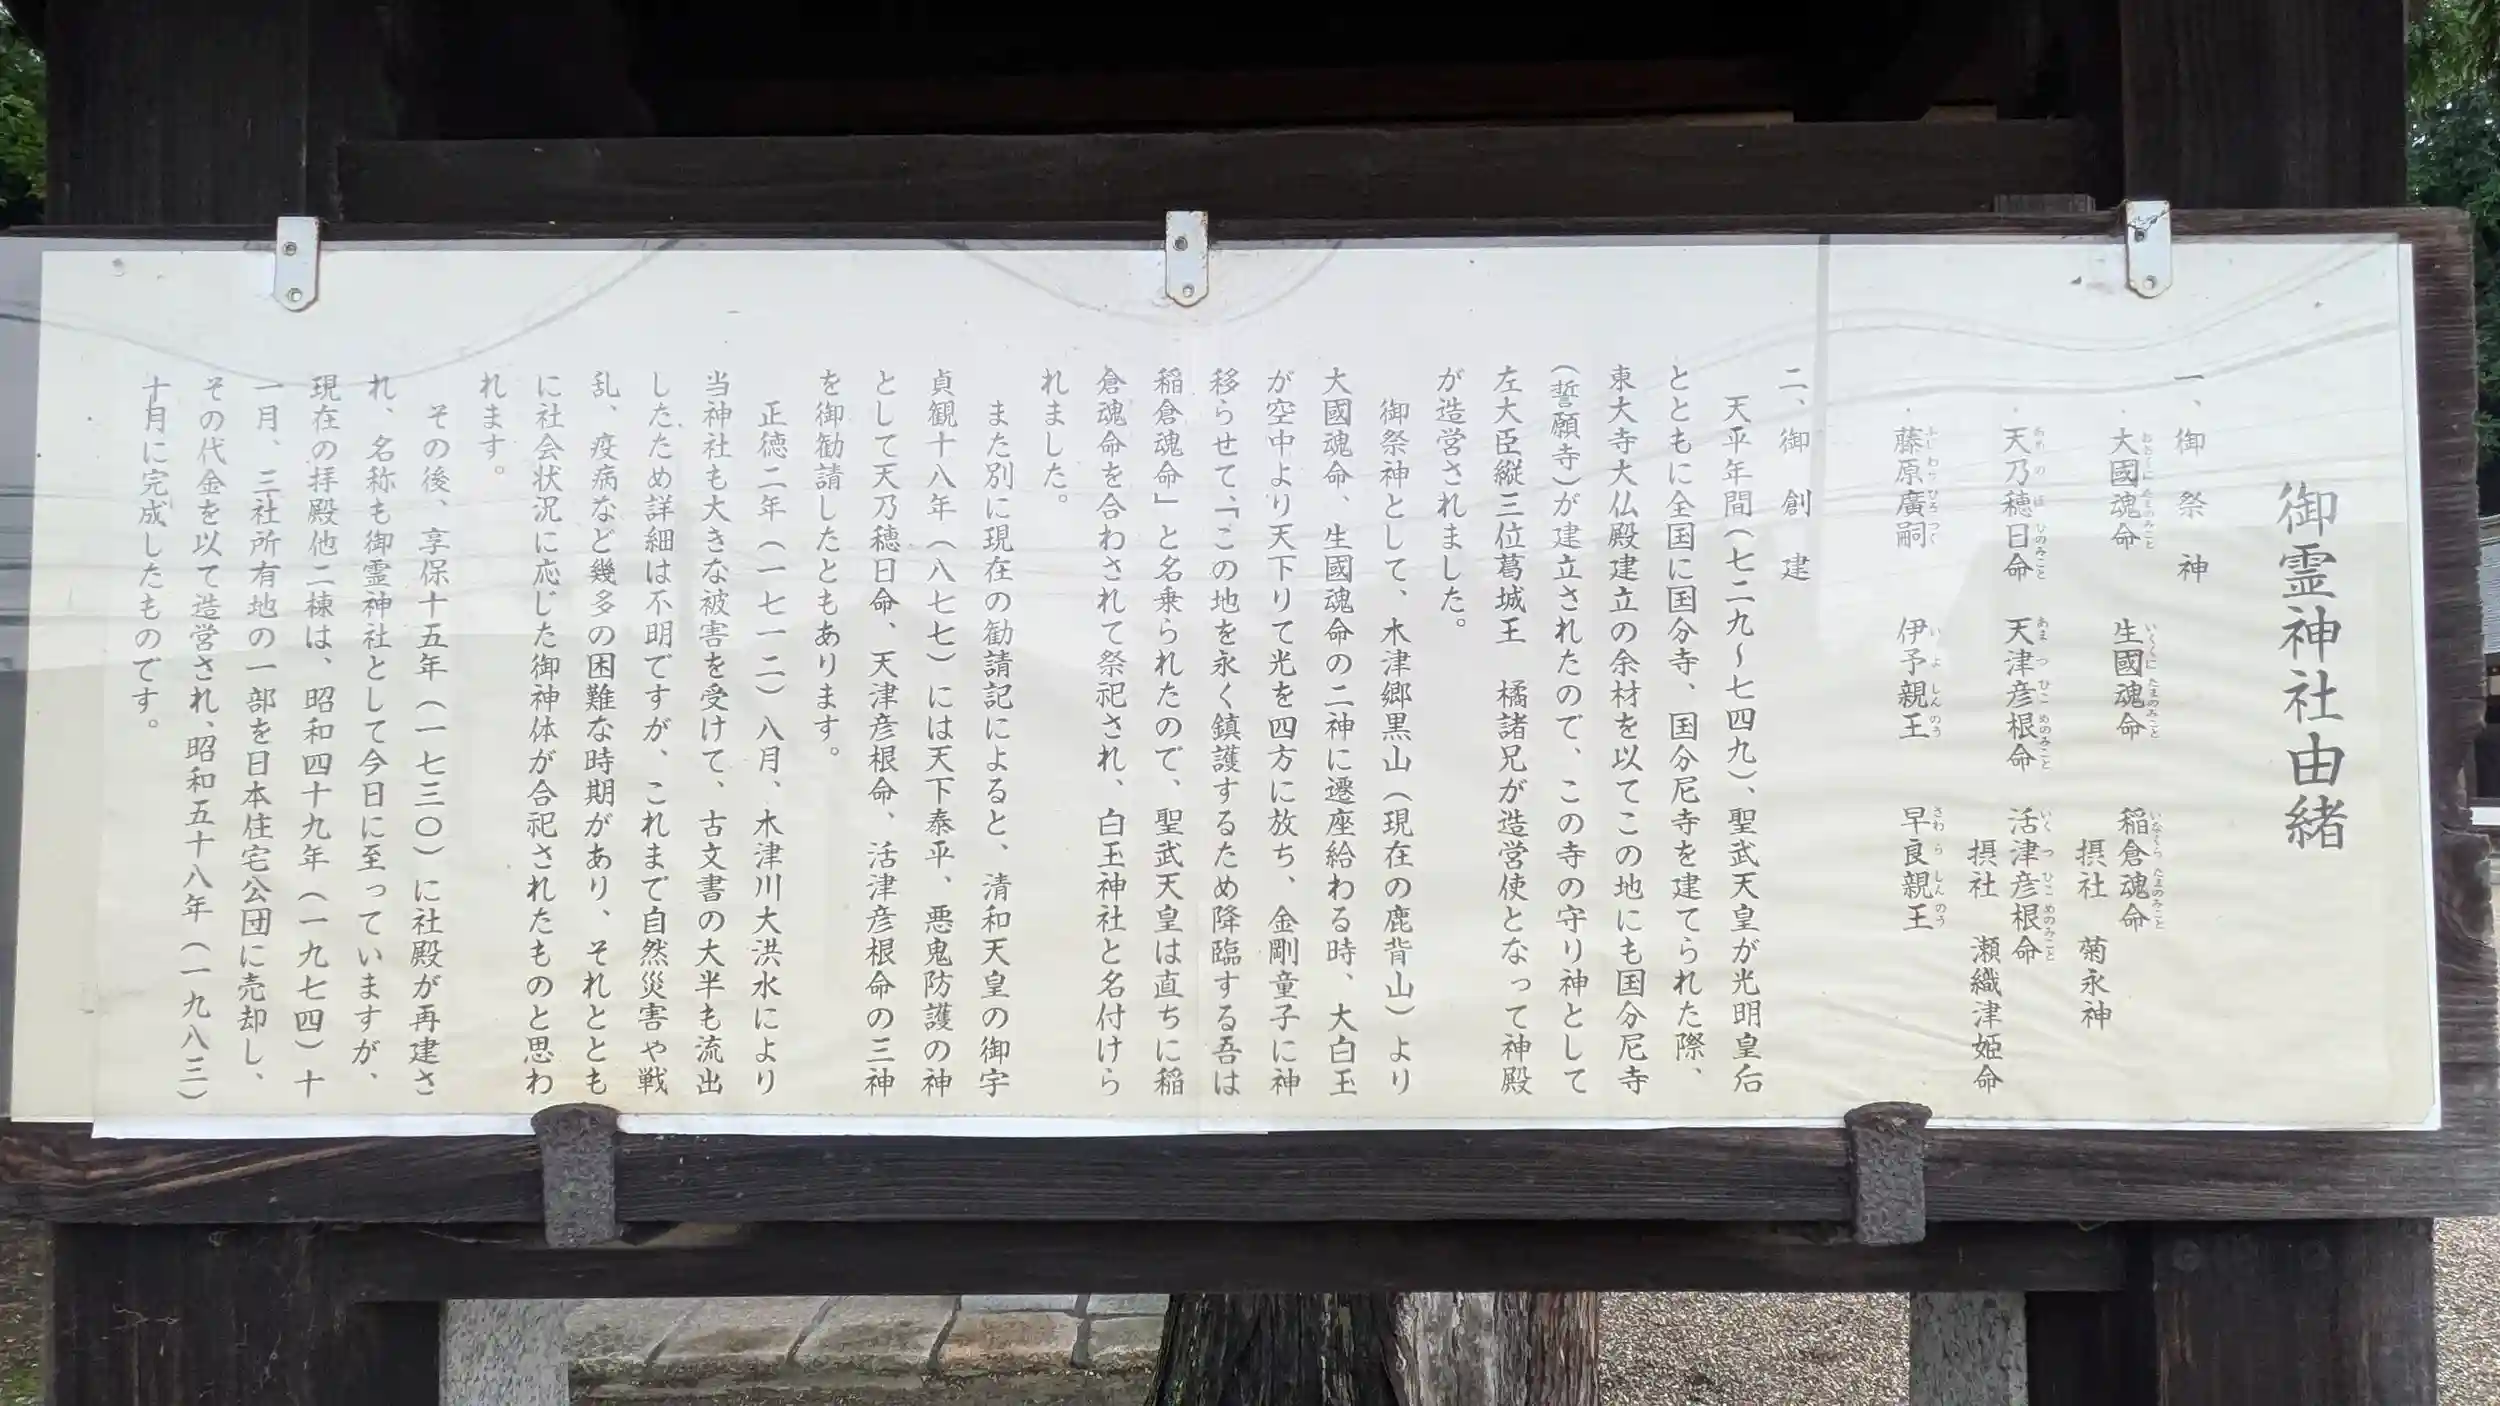 御霊神社由緒
一、御祭神
大國魂命　生國魂命　稲倉魂命
摂社　菊永神
天乃穂日命　天津彦根命　活津彦根命
摂社　瀬織津姫命
藤原廣嗣　伊予親王　早良親王
二、御創建
天平年間（七二九～七四九）、聖武天皇が光明皇后
とともに全国に国分寺、国分尼寺を建てられた際、
東大寺大仏殿建立の余材を以てこの地にも国分尼寺
（誓願寺）が建立されたので、この寺の守り神として
左大臣縦三位葛城王　橘諸兄が造営使となって神殿
が造営されました。
御祭神として、木津郷黒山（現在の鹿背山）より
大國魂命、生國魂命の二神に遷座給わる時、大白玉
が空中より天下りて光を四方に放ち、金剛童子に神
移らせて、「この地を永く鎮護するため降臨する吾は
稲倉魂命」と名乗られたので、聖武天皇は直ちに稲
倉魂命を合わされて祭祀され、白玉神社と名付けら
れました。
また別に現在の勧請記によると、清和天皇の御宇
貞観十八年（八七七）には天下泰平、悪鬼防護の神
として天乃穂日命、天津彦根命、活津彦根命の三神
を御勧請したともあります。
正徳二年（一七一二）八月、木津川大洪水により
当神社も大きな被害を受けて、古文書の大半も流出
したため詳細は不明ですが、これまで自然災害や戦
乱、疫病など幾多の困難な時期があり、それととも
に社会状況に応じた御神体が合祀されたものと思わ
れます。
その後、享保十五年（一七三〇）に社殿が再建さ
れ、名称も御霊神社として今日に至っていますが、
現在の拝殿他二棟は、昭和四十九年（一九七四）十
一月、三社所有地の一部を日本住宅公団に売却し、
その代金を以て造営され、昭和五十八年（一九八三）
十月に完成したものです。